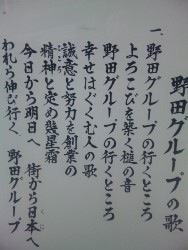 野田グループの歌
一、
野田グループの行くところ
よろこびを築く槌の音
野田グループの行くところ
幸せはぐくむ人の歌
誠意と努力を創業の
精神と定め幾星霜
こころ
今日から明日へ 街から日本へ
われら伸び行く 野田グループ